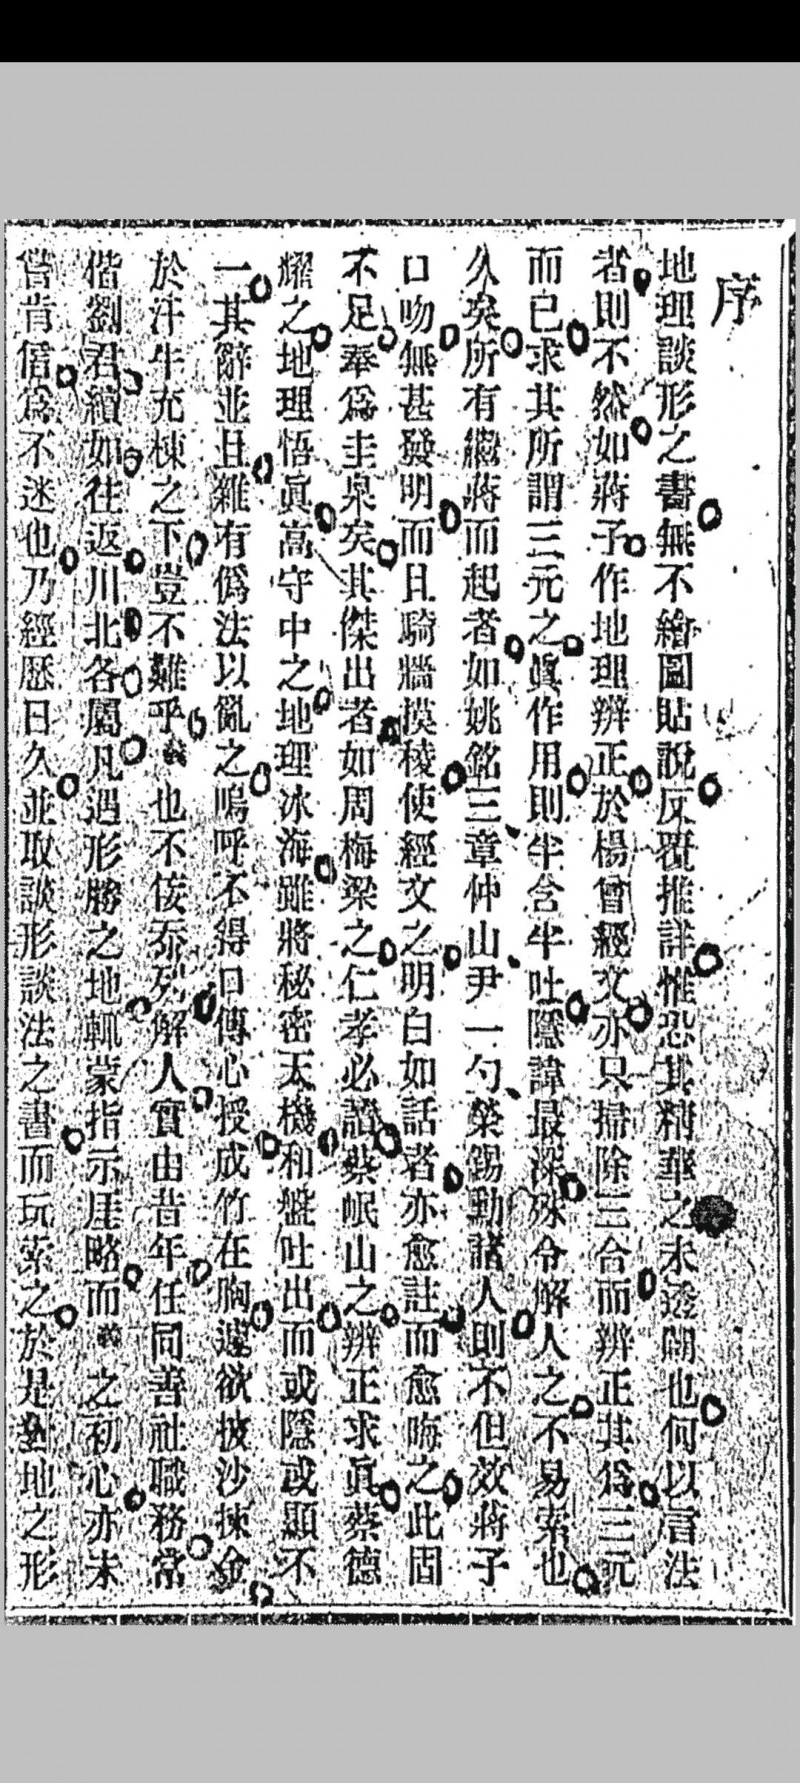 序
地理談形之書無不繪圖貼說反覆推詳惟恐其精華之未透闢也何以言法
者則不然如蔣子作地理辨正於楊曾經文亦只掃除三合而辨正其爲三元
而已求其所謂三元之眞作用則半含半吐隱諱最深殊令解人之不易索也
久矣所有繼蔣而起者如姚銘三章仲山尹一勺榮錫勳諸人則不但效蔣子
口吻無甚發明而且騎牆摸稜使經文之明白如話者亦愈註而愈晦之此固
不足奉爲圭臬矣其傑出者如周梅梁之仁孝必讀蔡岷山之辨正求眞蔡德
耀之地理悟眞高守中之地理冰海雖將秘密天機和盤吐出而或隱或顯不
一其辭並且雜有僞法以亂之嗚呼不得口傳心授成竹在胸遽欲披沙揀金
於汗牛充棟之下豈不難乎義也不侫忝列解人實由昔年任同善社職務常
偕劉君纘如往返川北各屬凡遇形勝之地輒蒙指示厓略而義之初心亦未
嘗肯信爲不迷也乃經歷日久並取談形談法之書而玩索之於是對地之形